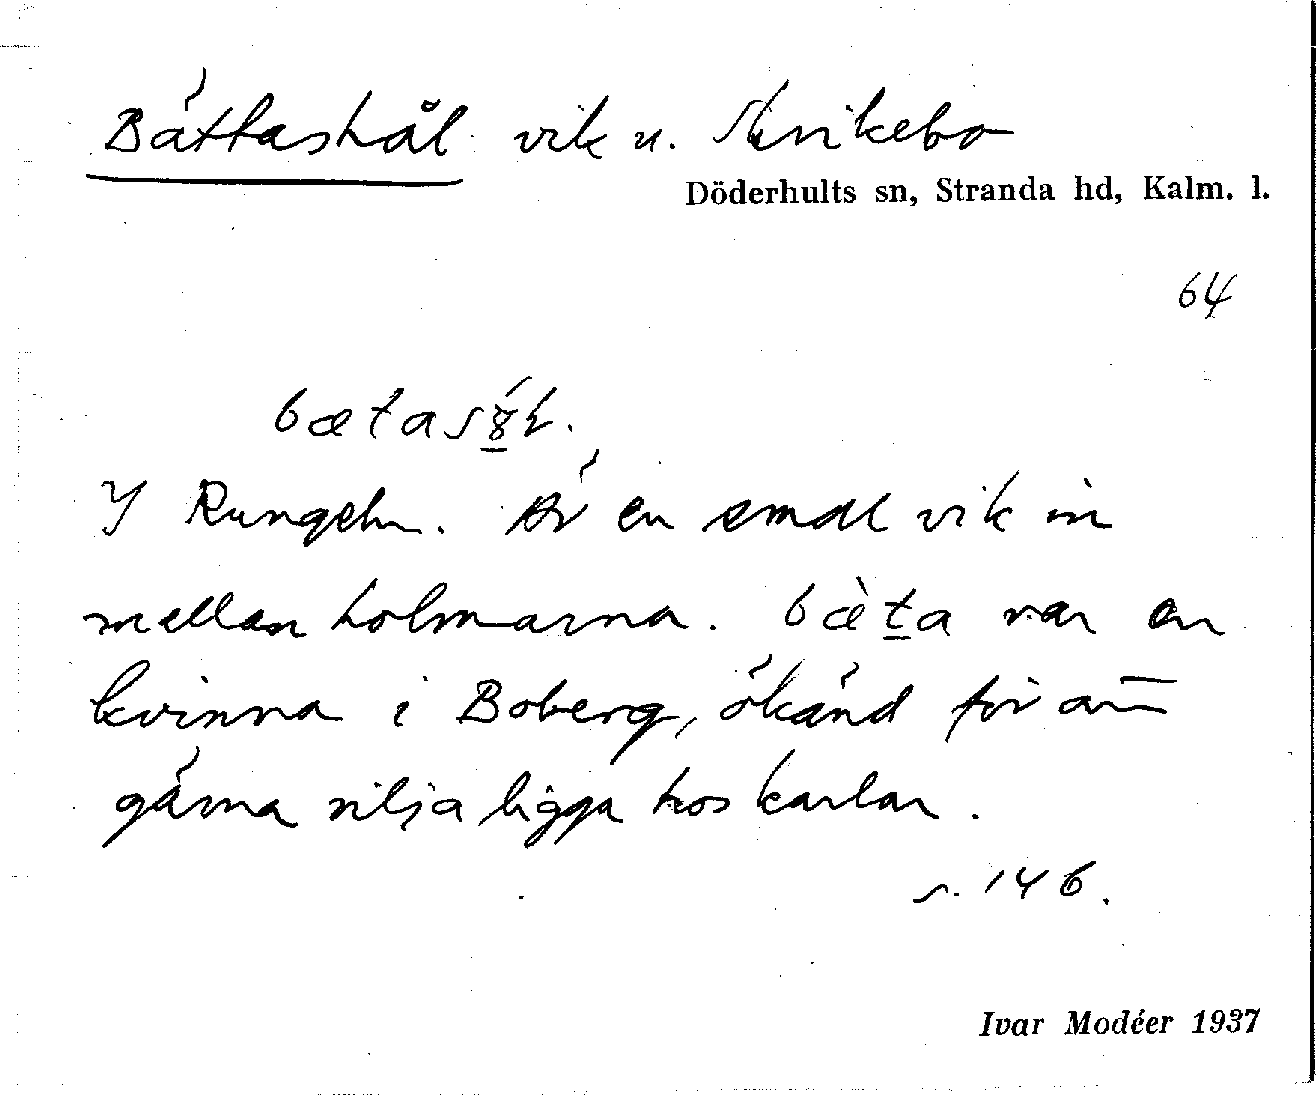 Bättashål vik u. Skrikebo
Döderhults sn, Stranda hd, Kalm. l.
64
I Rungeln. Är en smal vik in
mellan holmarna. bæ̀ta var en
kvinna i Boberg, ökänd för att
gärna vilja ligga hos karlar.
s. 146.
Ivar Modéer 1937